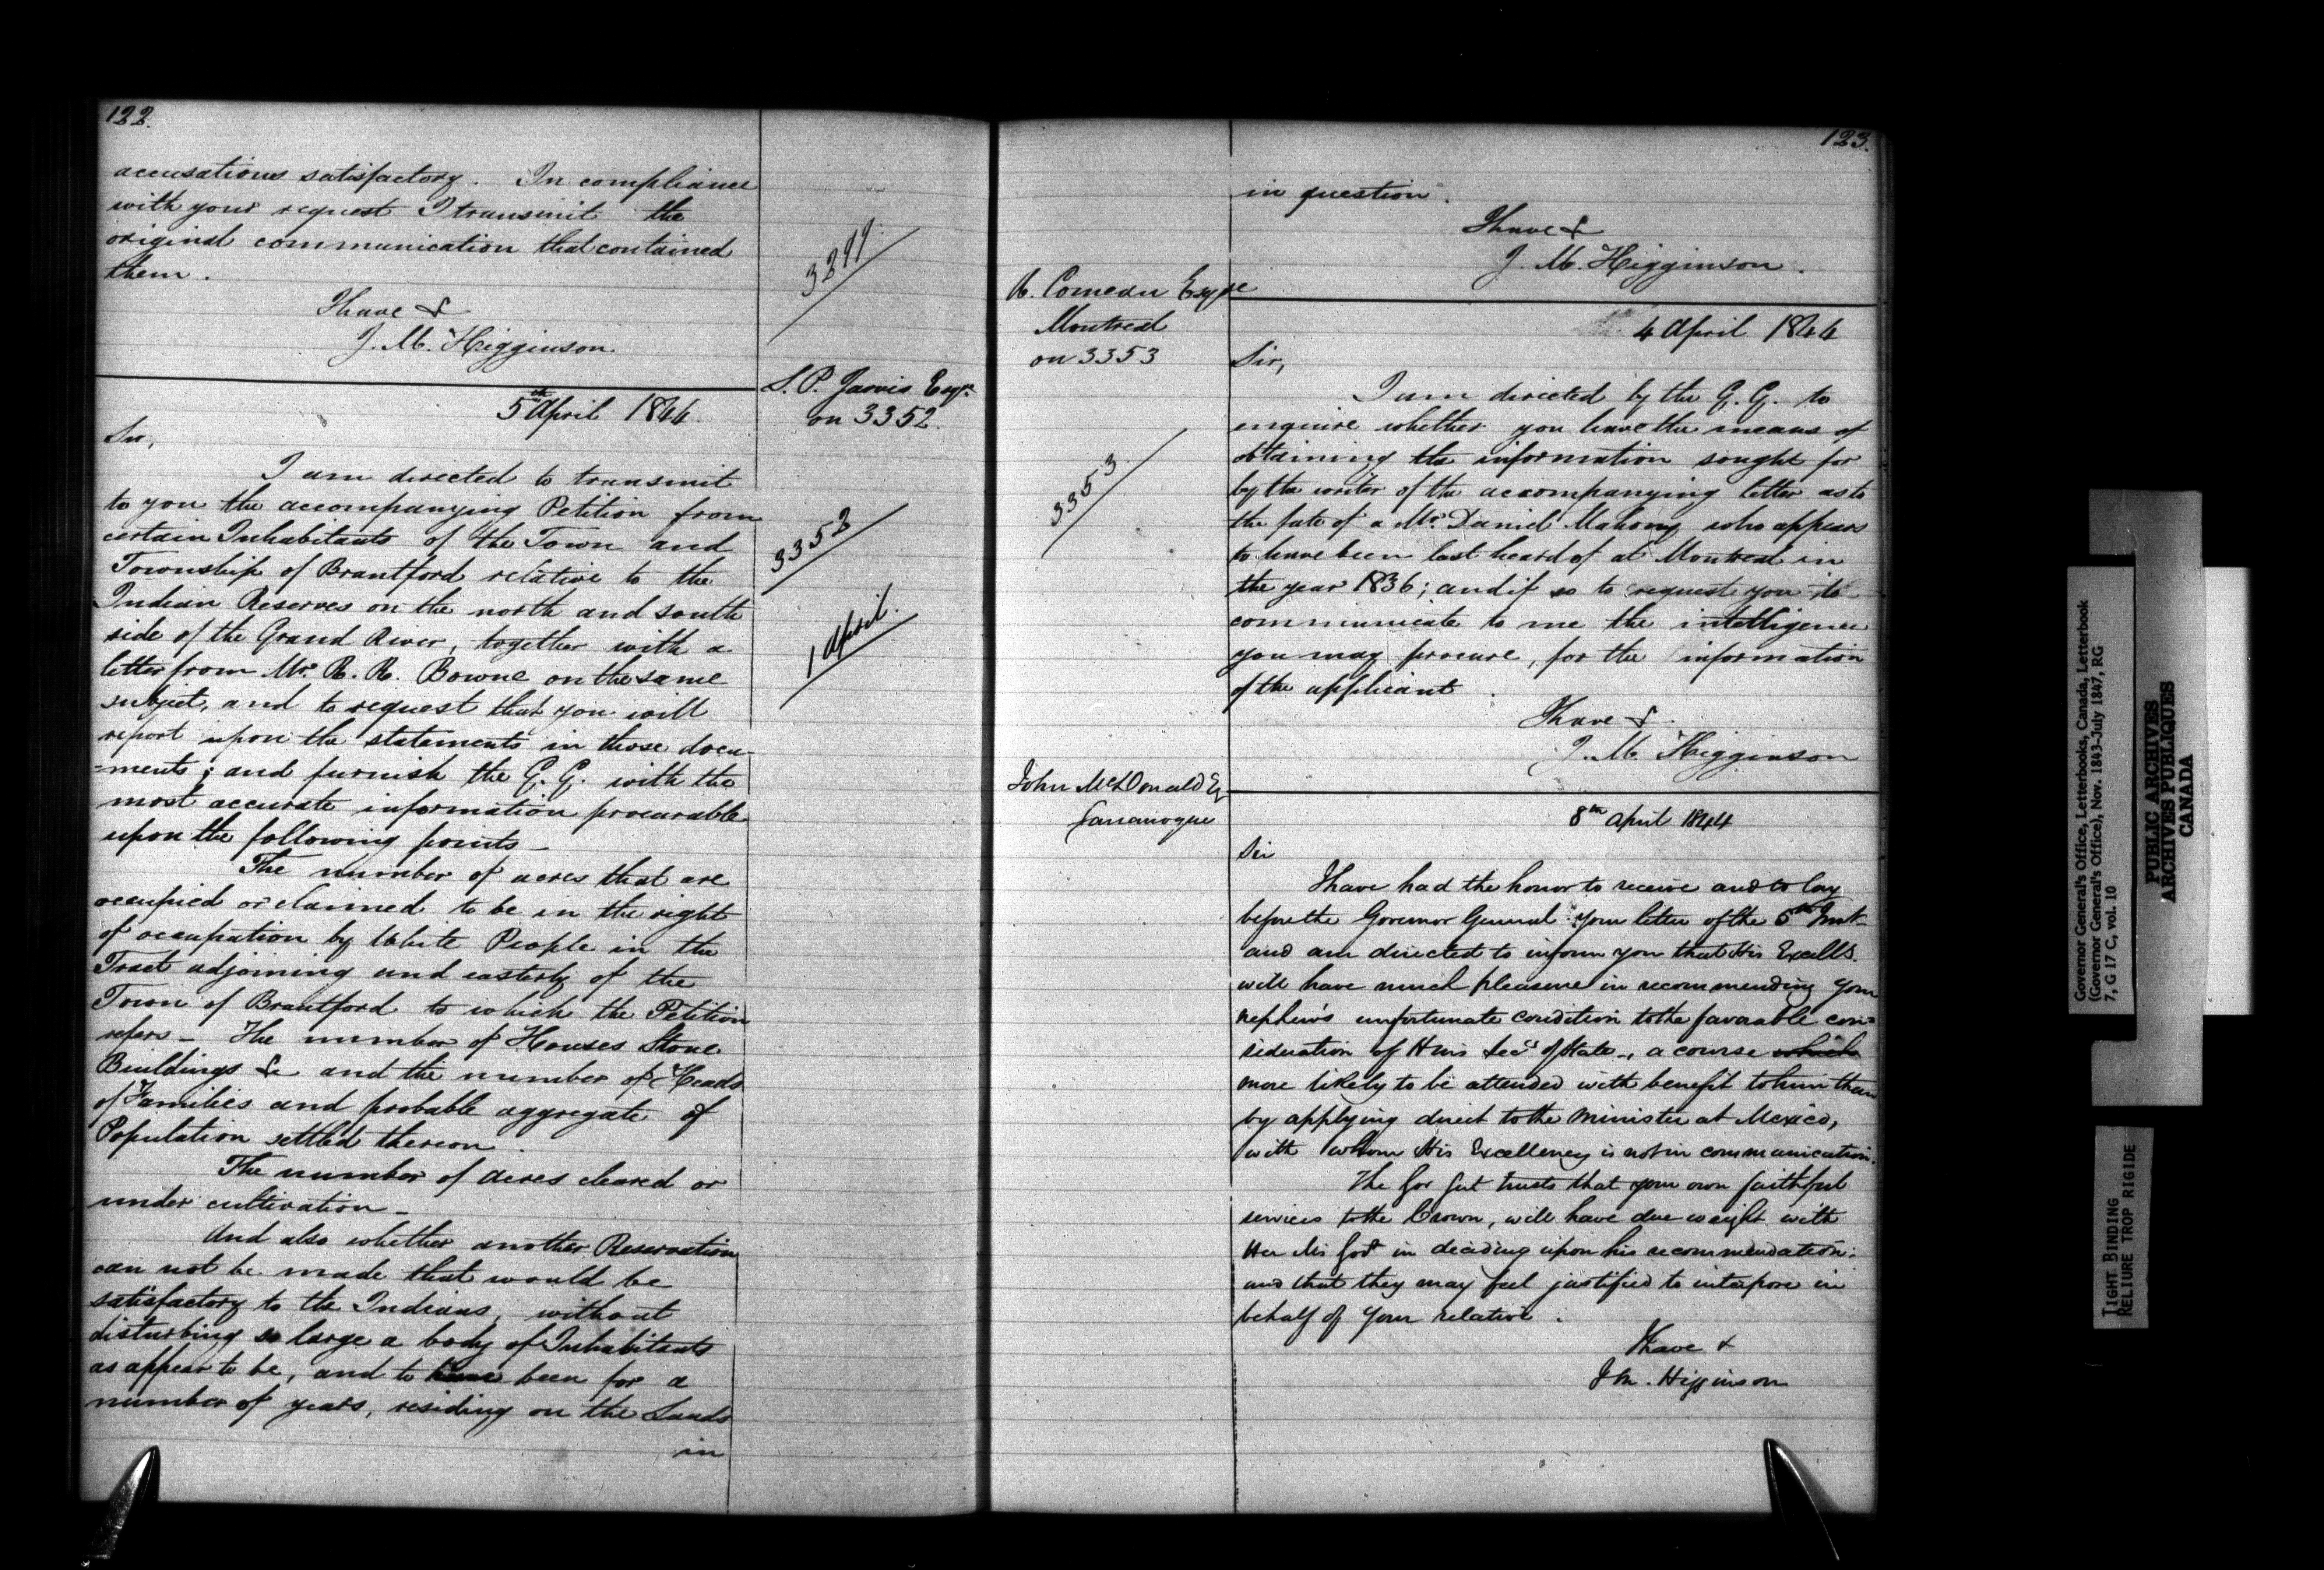 122.
accusations satisfactory. In compliance
with your request I transmit the
original communication that contained
them.
I have &
J. M. Higginson.
3299.
S. P. Jarvis Esqre
on 3352.
5th April 1844.
Sir,
I am directed to transmit
to you the accompanying Petition from
certain Inhabitants of the Town and
Township of Brantford relative to the
Indian Reserves on the north and south
side of the Grand River, together with a
letter from Mr. R. R. Bowne on the same
subject, and to request that you will
report upon the statements in those docu-
=ments; and furnish the G. G. with the
most accurate information procurable
upon the following points—
The number of acres that are
occupied or claimed to be in the right
of occupation by White People in the
Tract adjoining and easterly of the
Town of Brantford to which the Petition
refers— The number of Houses Stone
Buildings &c and the number of Heads
of Families and probable aggregate of
Population settled thereon.
The number of acres cleared or
under cultivation—
And also whether another Reservation
can not be made that would be
satisfactory to the Indians, without
disturbing so large a body of Inhabitants
as appear to be, and to have been for a
number of years, residing on the Lands
in
3352
1 April.
123.
in question.
I have &
J. M. Higginson.
Comeau Esqre
Montreal
on 3353
4 April 1844
Sir,
I am directed by the G. G. to
enquire whether you have the means of
obtaining the information sought for
by the writer of the accompanying letter as to
the fate of a Mr. Daniel Mahony who appears
to have been last heard of at Montreal in
the year 1836; and if so to request you to
communicate to me the intelligence
you may procure, for the information
of the applicant.
I have &.
J. M. Higginson
3353.
John McDonald Eq
Gananoque
8th April 1844
Sir
I have had the honor to receive and to lay
before the Governor General your letter of the 5th Inst
and am directed to inform you that His Excells.
will have much pleasure in recommending your
nephew's unfortunate condition to the favorable con=
sideration of Secy of State—, a course which
more likely to be attended with benefit to him than
by applying direct to the Minister at Mexico,
with whom His Excellency is not in communication.
The Gov Genl trusts that your own faithful
services to the Crown, will have due weight with
Her Govt in deciding upon his recommendation:
and that they may feel justified to interpose in
behalf of your relative.
I have &
J M. Higginson
Governor General's Office, Letterbooks, Canada, Letterbook
(Governor General's Office), Nov. 1843-July 1847, RG
7, G 17 C, vol. 10
PUBLIC ARCHIVES
ARCHIVES PUBLIQUES
CANADA
TIGHT BINDING
RELIURE TROP RIGIDE